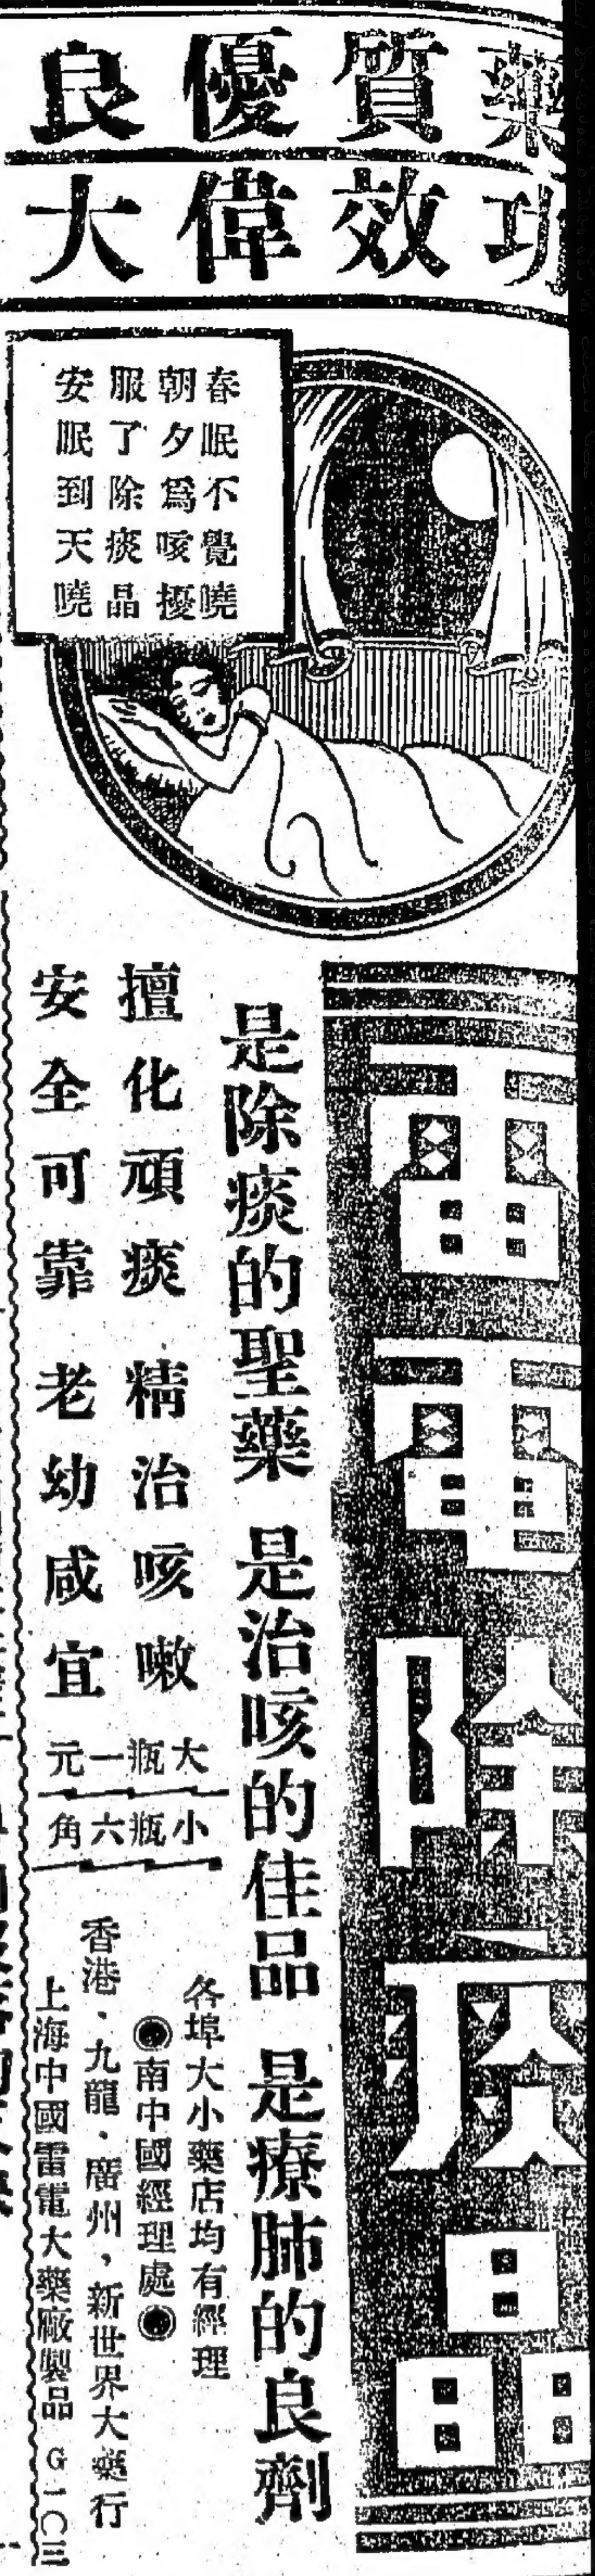 藥質優良
功效偉大
春眠不覺曉
朝夕為咳擾
服了除痰品
安眠到天曉
雷電除痰品
是除痰的聖藥 是治咳的佳品 是療肺的良劑
擅化頑痰 精治咳嗽
安全可靠 老幼咸宜
大瓶一元
小瓶六角
各埠大小藥店均有經理
◉南中國經理處◉
香港·九龍·廣州，新世界大藥行
上海中國雷電大藥廠製品 G一〇三